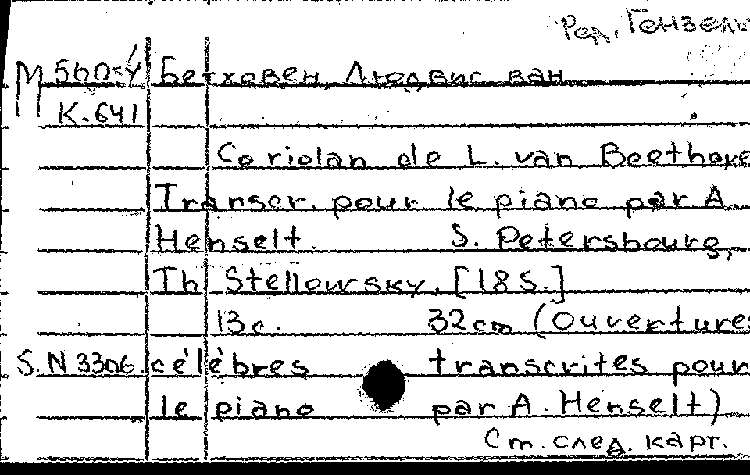 Ред. Гензель
М 560-У Бетховен, Людвиг ван
К.641
Coriolan de L. van Beethove
Transcr. pour le piano par A.
Henselt. S. Petersbourg,
Th. Stellowsky. [185.]
13с. 32cm (Ouvertures
S.N 3306. célèbres transcrites pour
le piano par A. Henselt)
См. след. карт.